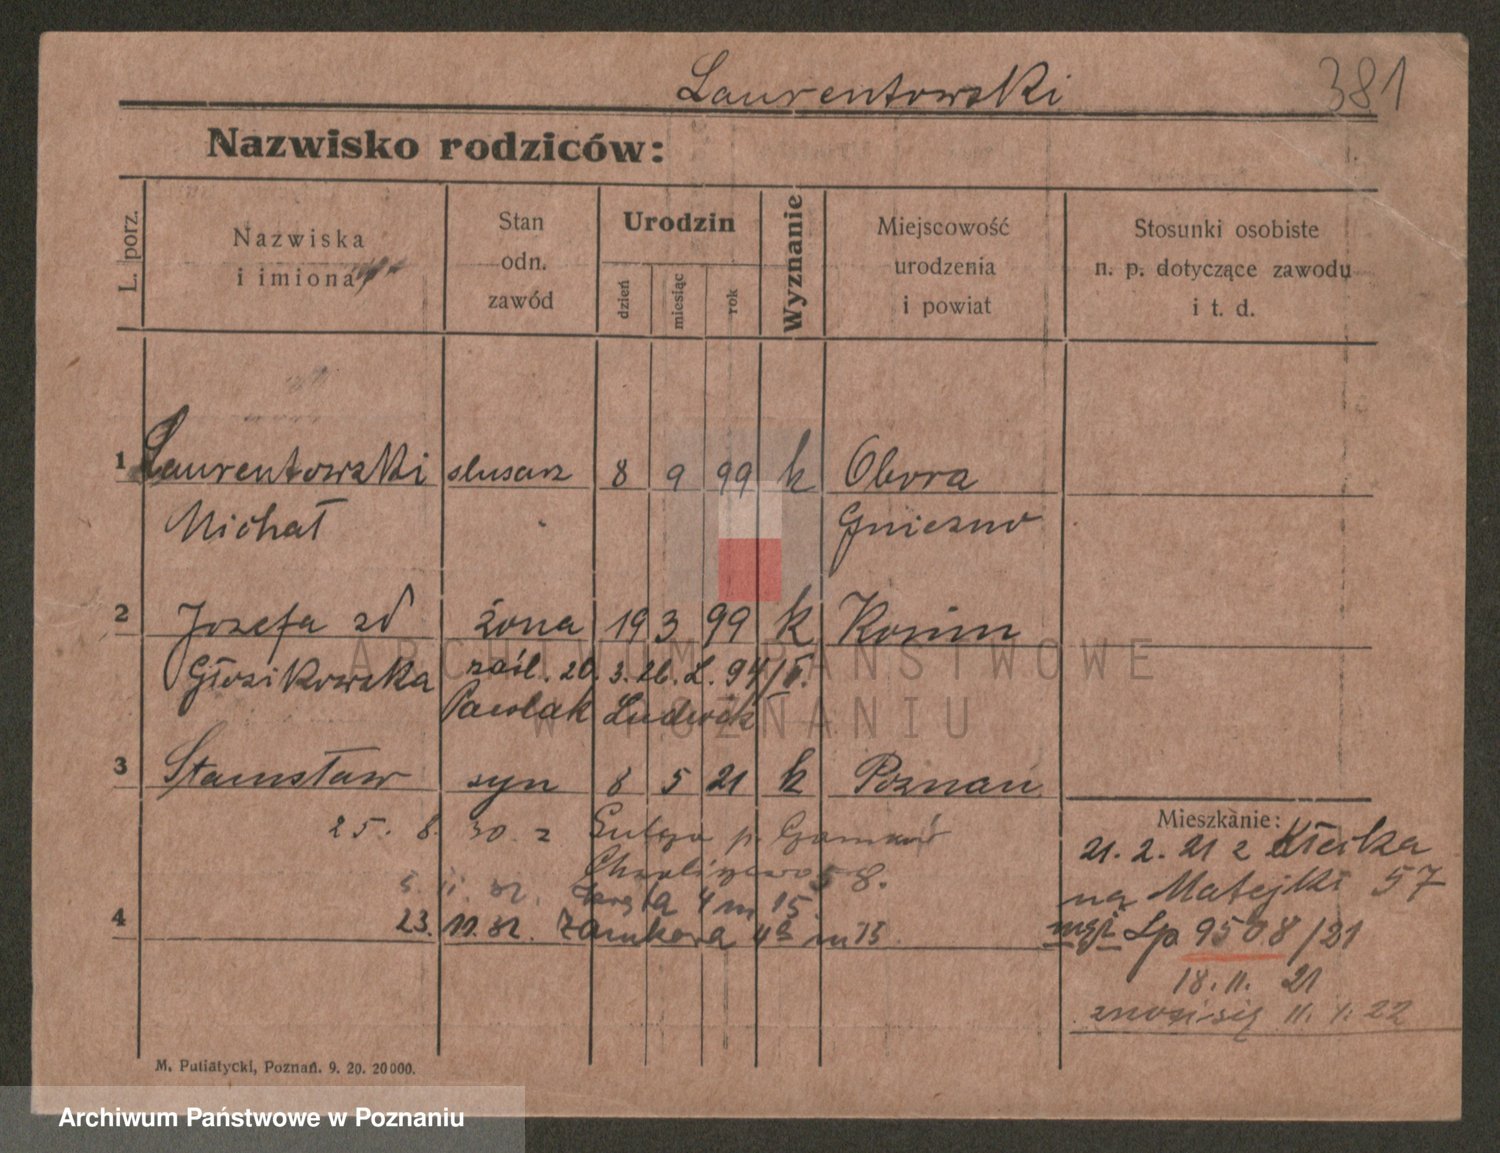 Laurentowski
381
Nazwisko rodziców:
L. porz.
Nazwiska
i imiona
Stan
odn.
zawód
Urodzin
dzień
miesiąc
rok
Wyznanie
Miejscowość
urodzenia
i powiat
Stosunki osobiste
n. p. dotyczące zawodu
i t. d.
1 Laurentowski slusarz 8 9 99 k Obora
Michał Gniezno
2 Józefa zd żona 19 3 99 k Konin
Głosikowska zaśl. 20. 3. 26. L. 94/II.
Pawlak Ludwik
3 Stanisław syn 8 5 21 k Poznań
25. 8. 30 z p.
58.
32. 4 m 15.
4 23. 11. 32. Zamkowa 4a m 15
Mieszkanie:
21. 2. 21 z Kłecka
na Matejki 57
Lp 9508/21
18. 11. 21
znosi się 11. 1. 22
M. Putiatycki, Poznań. 9. 20. 20000.
ARCHIWUM PAŃSTWOWE
W POZNANIU
Archiwum Państwowe w Poznaniu